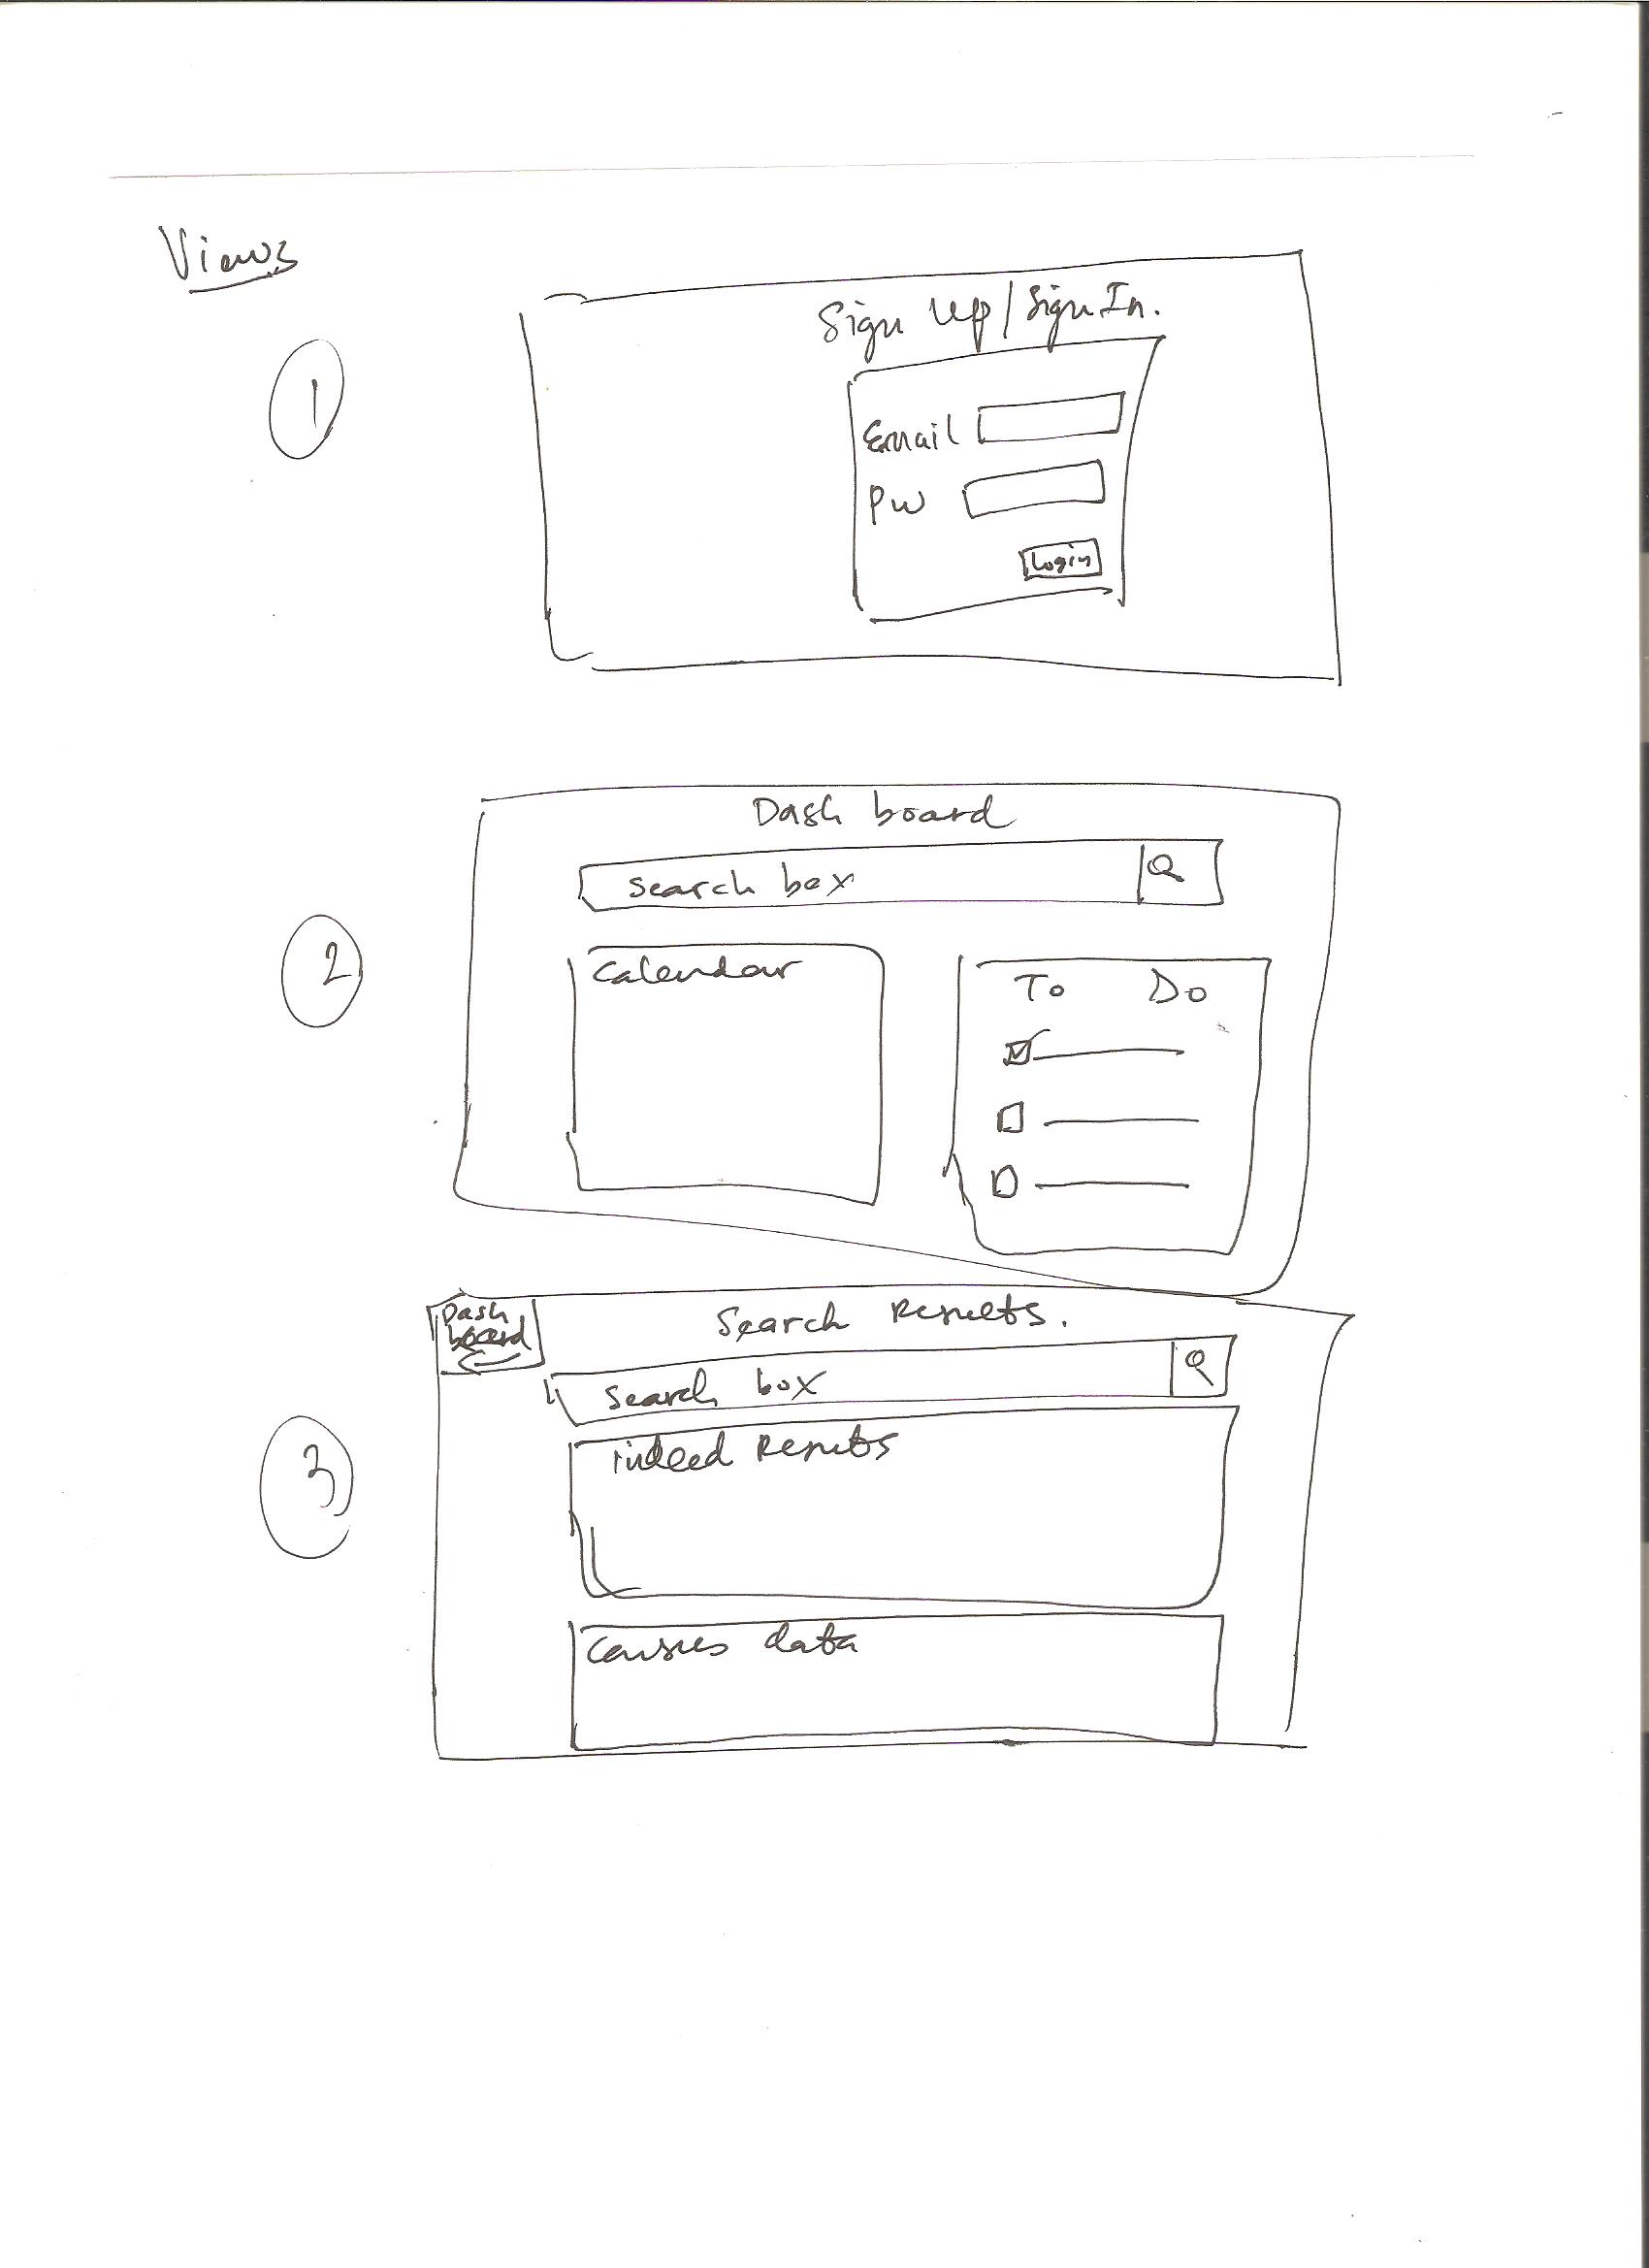 Views
1
Sign Up / Sign In.
Email
Pw
Login
2
Dash board
Search box
Calendar
To Do
3
Dash
board
Search Results.
Search box
indeed Results
Census data